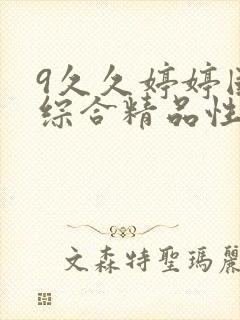 9久久婷婷国
综合精品性
文森特聖瑪麗